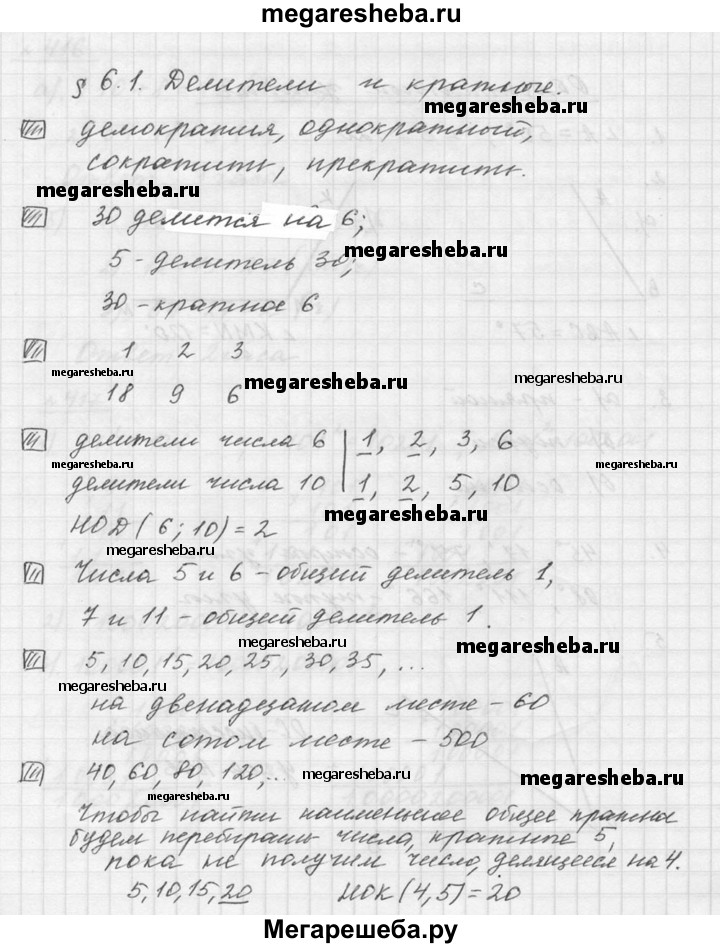 megaresheba.ru
§ 6.1. Делители и кратные.
megaresheba.ru
демократия, однократный,
сократить, прекратить.
megaresheba.ru
30 делится на 6;
megaresheba.ru
5 - делитель 30;
30 - кратное 6
1 2 3
megaresheba.ru
megaresheba.ru
megaresheba.ru
18 9 6
делители числа 6 | 1, 2, 3, 6
megaresheba.ru
делители числа 10 | 1, 2, 5, 10
megaresheba.ru
НОД (6; 10) = 2
megaresheba.ru
Числа 5 и 6 - общий делитель 1,
7 и 11 - общий делитель 1.
megaresheba.ru
megaresheba.ru
5, 10, 15, 20, 25, 30, 35, ...
megaresheba.ru
на двенадцатом месте - 60
на сотом месте - 500
40, 60, 80, 120, ...
megaresheba.ru
megaresheba.ru
megaresheba.ru
Чтобы найти наименьшее общее кратное
будем перебирать числа, кратные 5,
пока не получим число, делящееся на 4.
5, 10, 15, 20 НОК (4, 5) = 20
Мегарешеба.ру